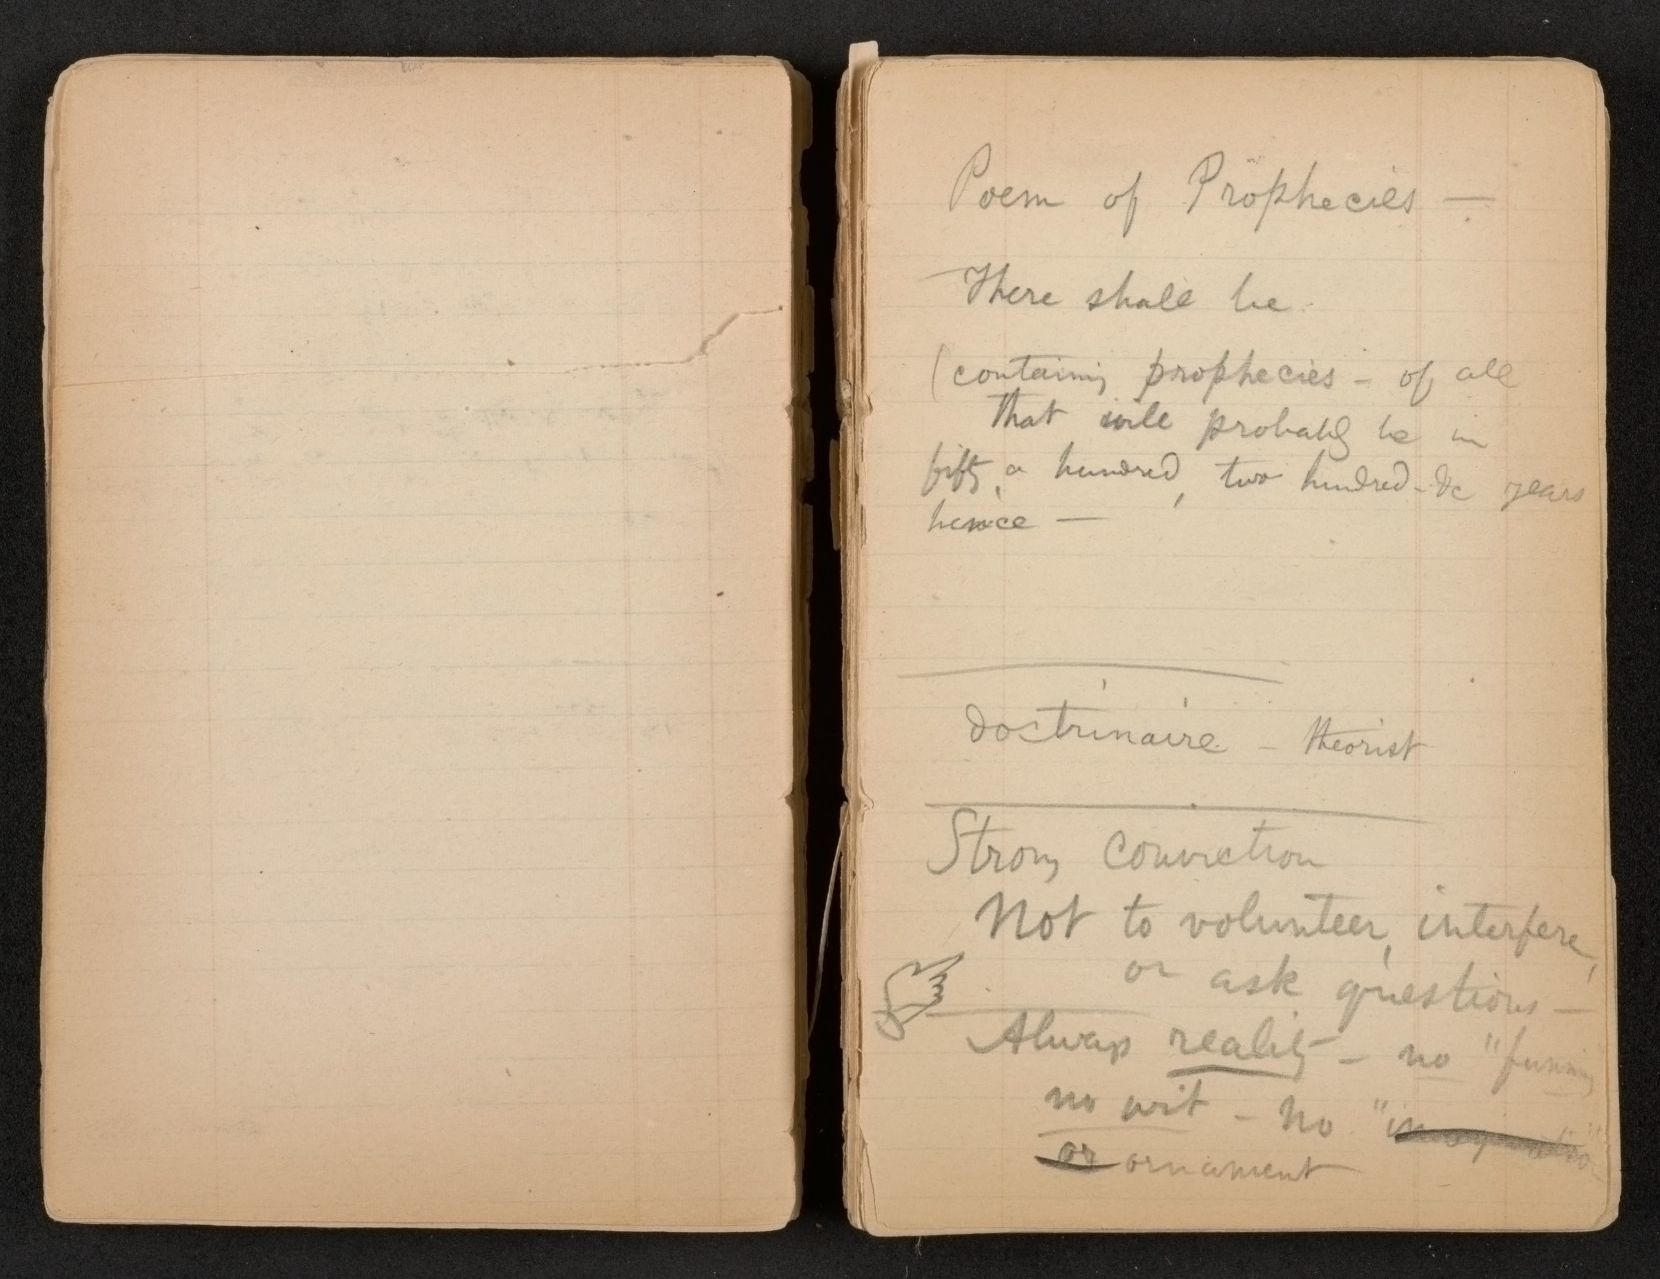 Poem of Prophecies —
There shall be
(containing prophecies – of all
that will probably be in
fifty, a hundred, two hundred &c years
hence —
doctrinaire – theorist
Strong conviction
Not to volunteer, interfere,
or ask questions —
Always reality – no "funny"
no wit – no "imagination"
or ornament